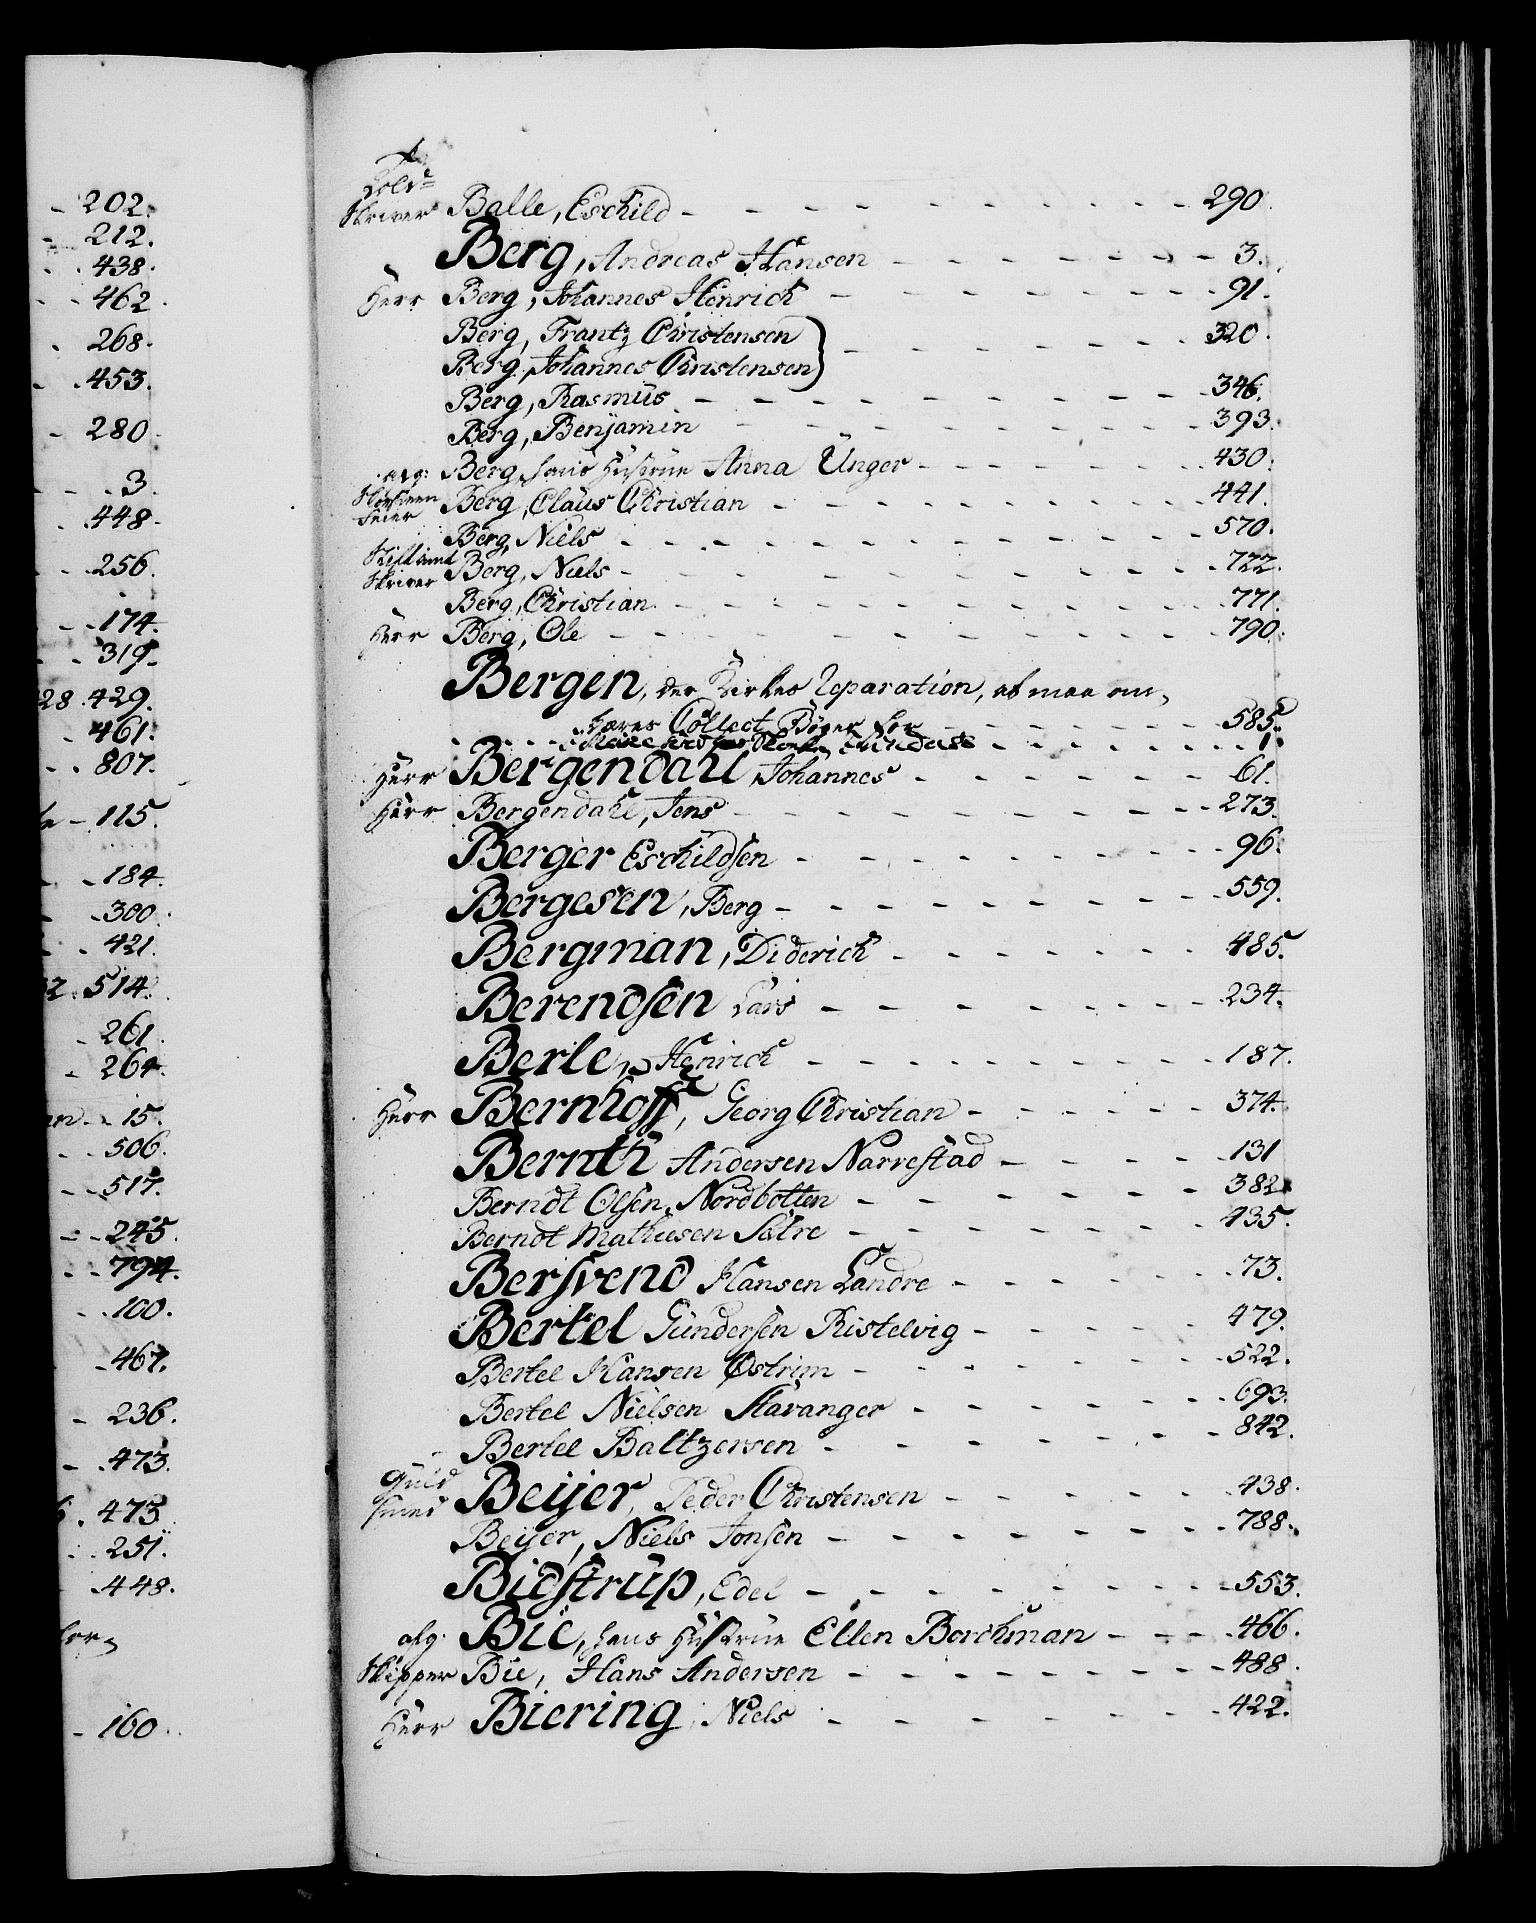 202.
212.
438.
462.
268.
453.
280
3.
448.
256.
174.
319.
28. 429.
461.
807.
115.
184.
300.
421.
514.
261.
264.
15.
506.
517.
245.
794.
100.
467.
236.
473.
473
251.
448.
160.
Skriver Balle, Eschild - 290.
Berg, Andreas Hansen - 3.
Herr Berg, Johannes Henrich - 91.
Berg, Frantz Christensen } 320.
Berg, Johannes Christensen }
Berg, Rasmus - 346.
Berg, Benjamin - 393.
Berg, hans Hustrue Anna Unger - 430.
Berg, Claus Christian - 441.
Berg, Niels - 570.
Stiftamt
Skriver Berg, Niels - 722.
Berg, Christian - 771.
Herr Berg, Ole - 790.
Bergen, der Kirkes Reparation, at maa om,
bæres Collect Bøger for - 585.
Herr Bergendahl, Johannes - 61.
Herr Bergendahl, Jens - 273.
Berger Eschildsen - 96.
Bergesen, Berg - 559.
Bergman, Diderich - 485.
Berendsen Lars - 234.
Berle, Henrich - 187.
Herr Bernhoft, Georg Christian - 374.
Bernth Andersen Narrestad - 131
Berndt Olsen Nordbotten - 382
Berndt Mathiesen Satre - 435.
Bersvend Hansen Landre - 73.
Bertel Gundersen Ristelvig - 479.
Bertel Hansen Østrim - 522.
Bertel Nielsen Stavanger - 693.
Bertel Baltzersen - 842.
Guld
smed Beijer, Peder Christensen - 438.
Beijer, Niels Jonsen - 788.
Bidstrup, Edel - 553.
afg: Bie, hans Hustrue Ellen Borchman - 466.
Skipper Bie, Hans Andersen - 488.
Herr Biering, Niels - 422.